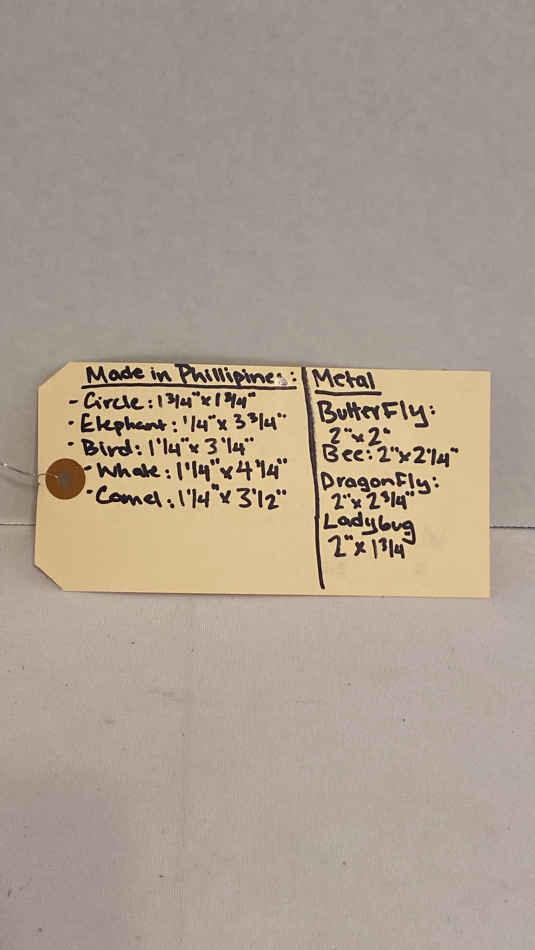 Made in Phillipines:
- Circle: 1 3/4" x 1 3/4"
- Elephant: 1/4" x 3 3/4"
- Bird: 1 1/4" x 3 1/4"
- Whale: 1 1/4" x 4 1/4"
- Camel: 1 1/4" x 3 1/2"
Metal
ButterFly:
2" x 2"
Bee: 2" x 2 1/4"
DragonFly:
2" x 2 3/4"
Ladybug
2" x 1 3/4"